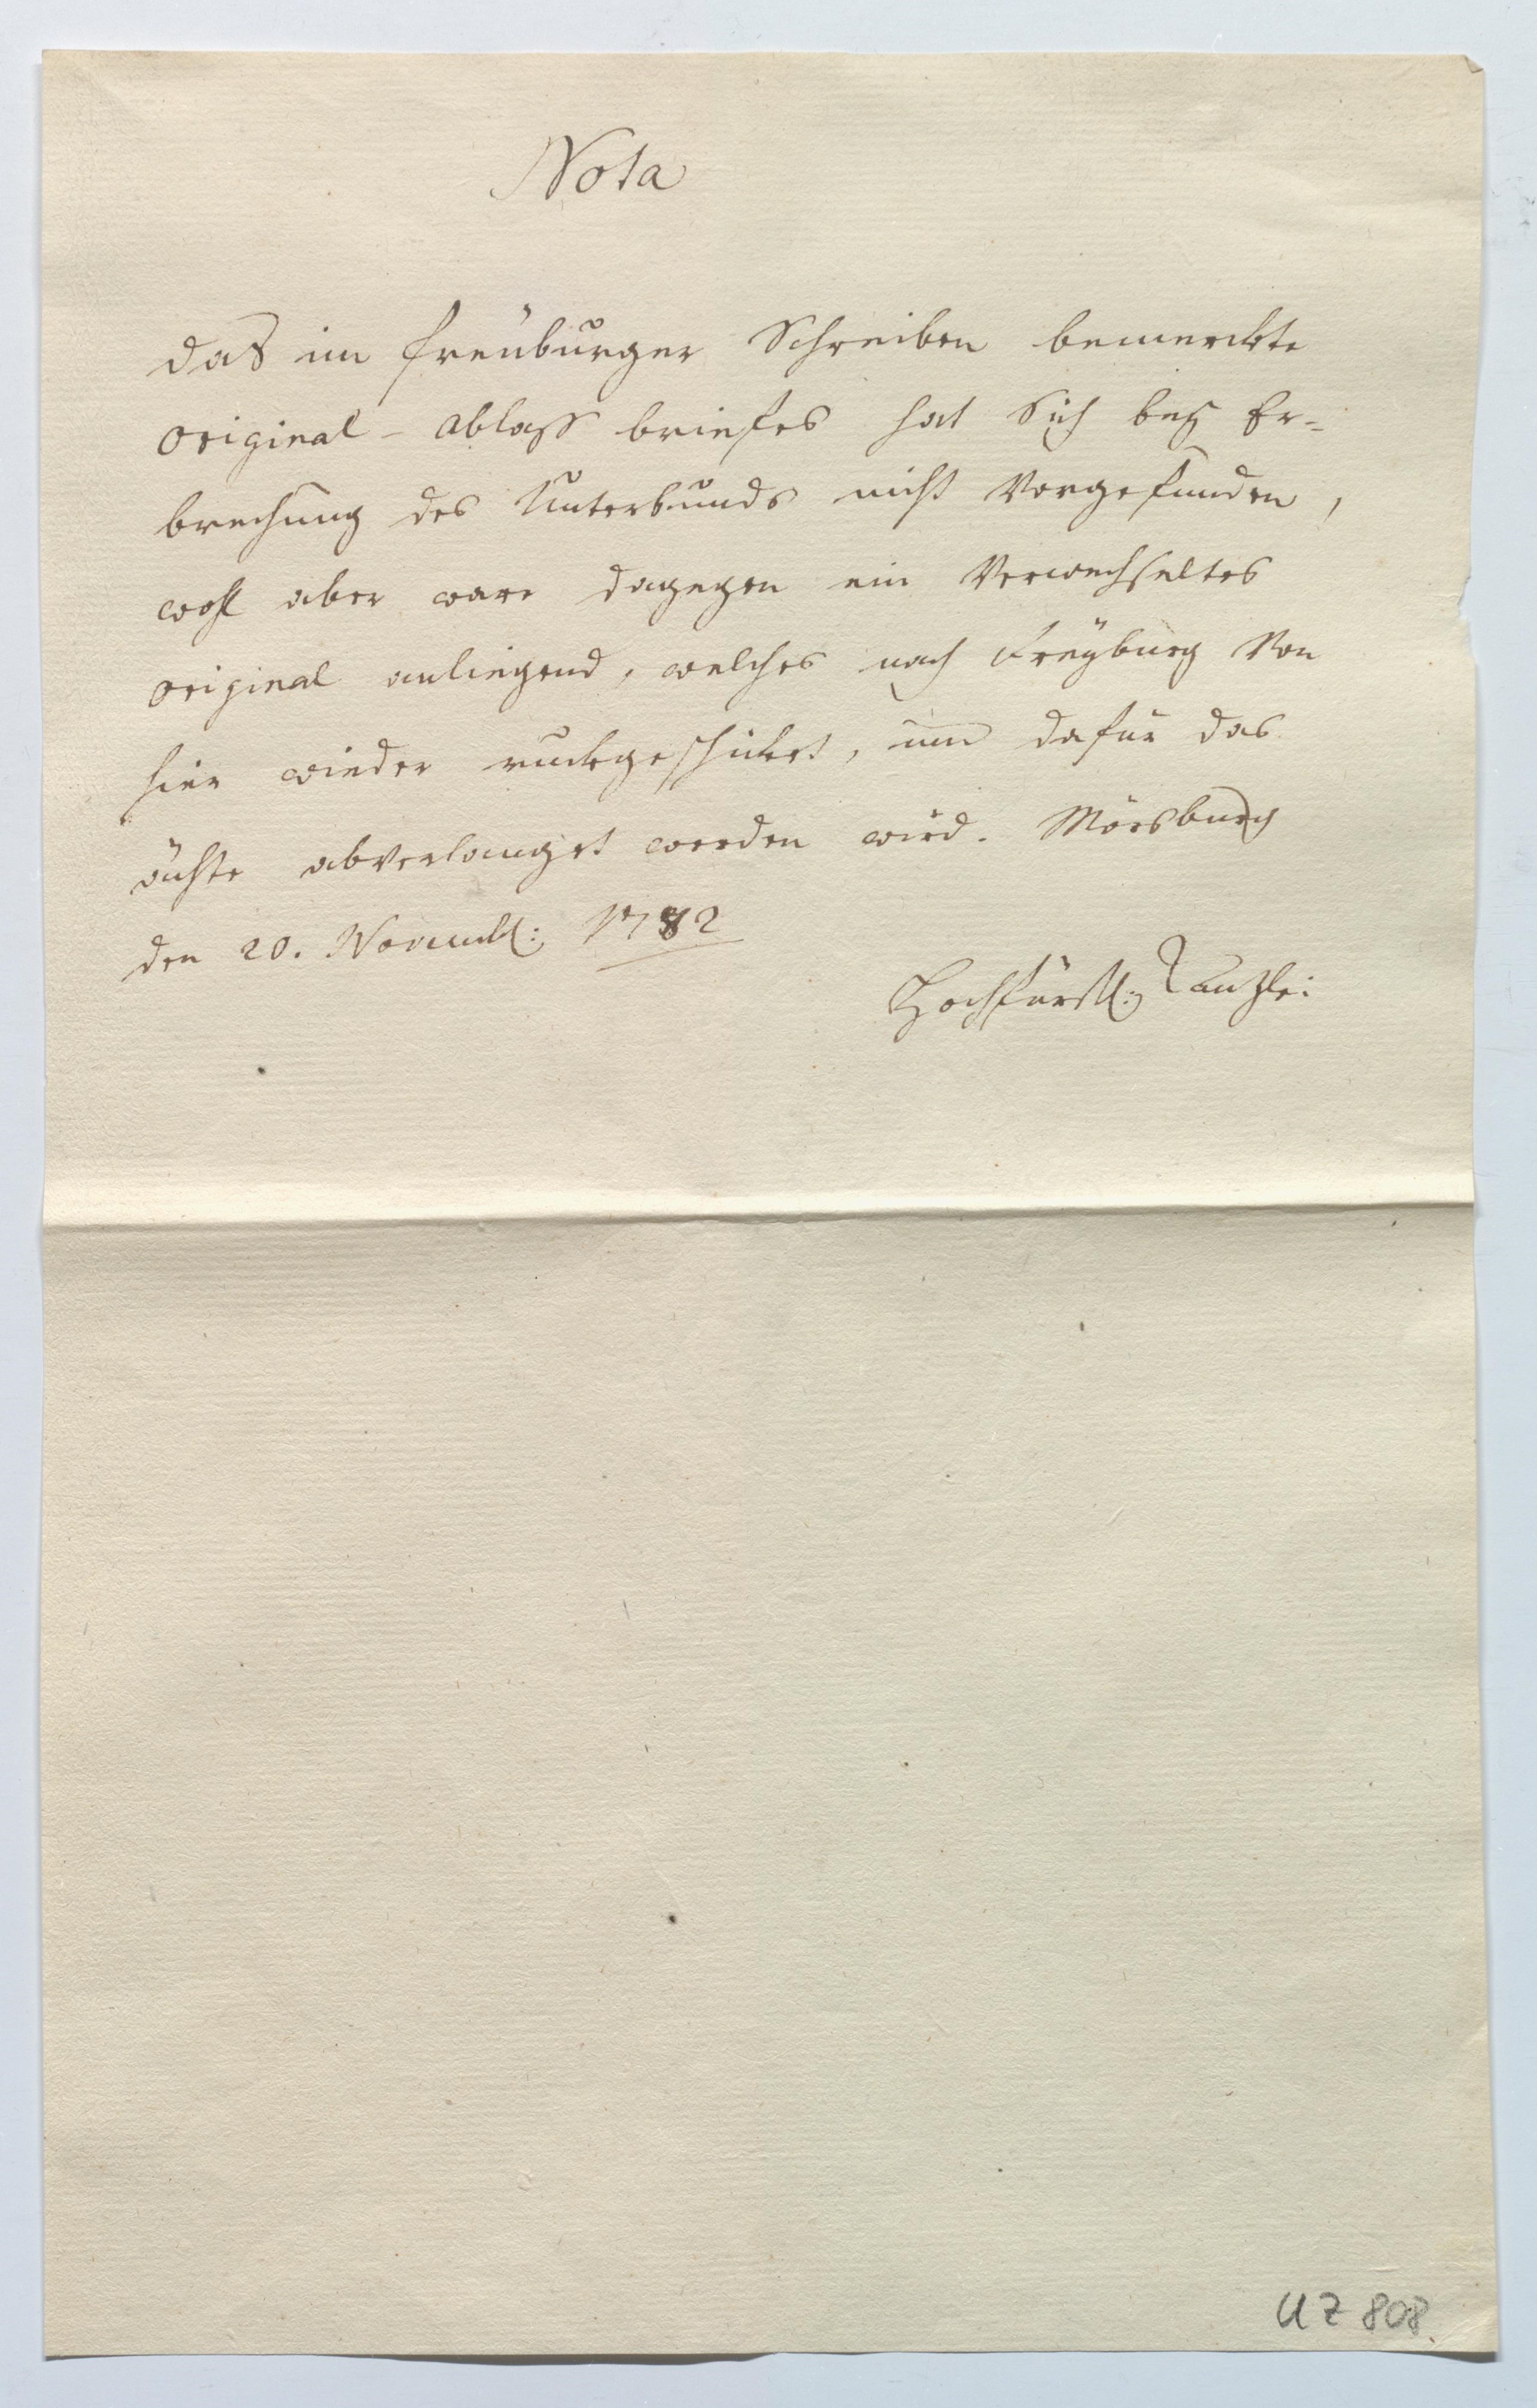 Nota
das im freüburger Schreiben bemerckte
original - ablass briefes hat Sich beÿ Er-
brechung des Unterbunds nicht Vorgefunden,
wohl aber ware dagegen ein Verwechseltes
original anliegend, welches nach Freÿburg Von
hier wieder ruckgeschicket, um dafür das
ächte abverlanget werden wird. Mörsburg
den 20. Novembr: 1782
Hochfürstl: Kanzlei
UZ 808.